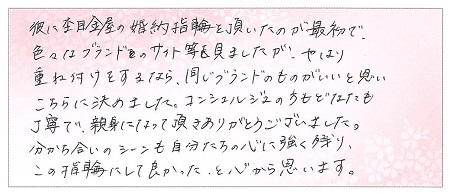 彼に杢目金屋の婚約指輪を頂いたのが最初で、
色々なブランドのサイト等を見ましたが、やはり
重ね付けをするなら、同じブランドのものがいいと思い
こちらに決めました。コンシェルジュの方もどなたも
丁寧で、親身になって頂きありがとうございました。
分かち合いのシーンも自分たちの心に強く残り、
この指輪にして良かった、と心から思います。